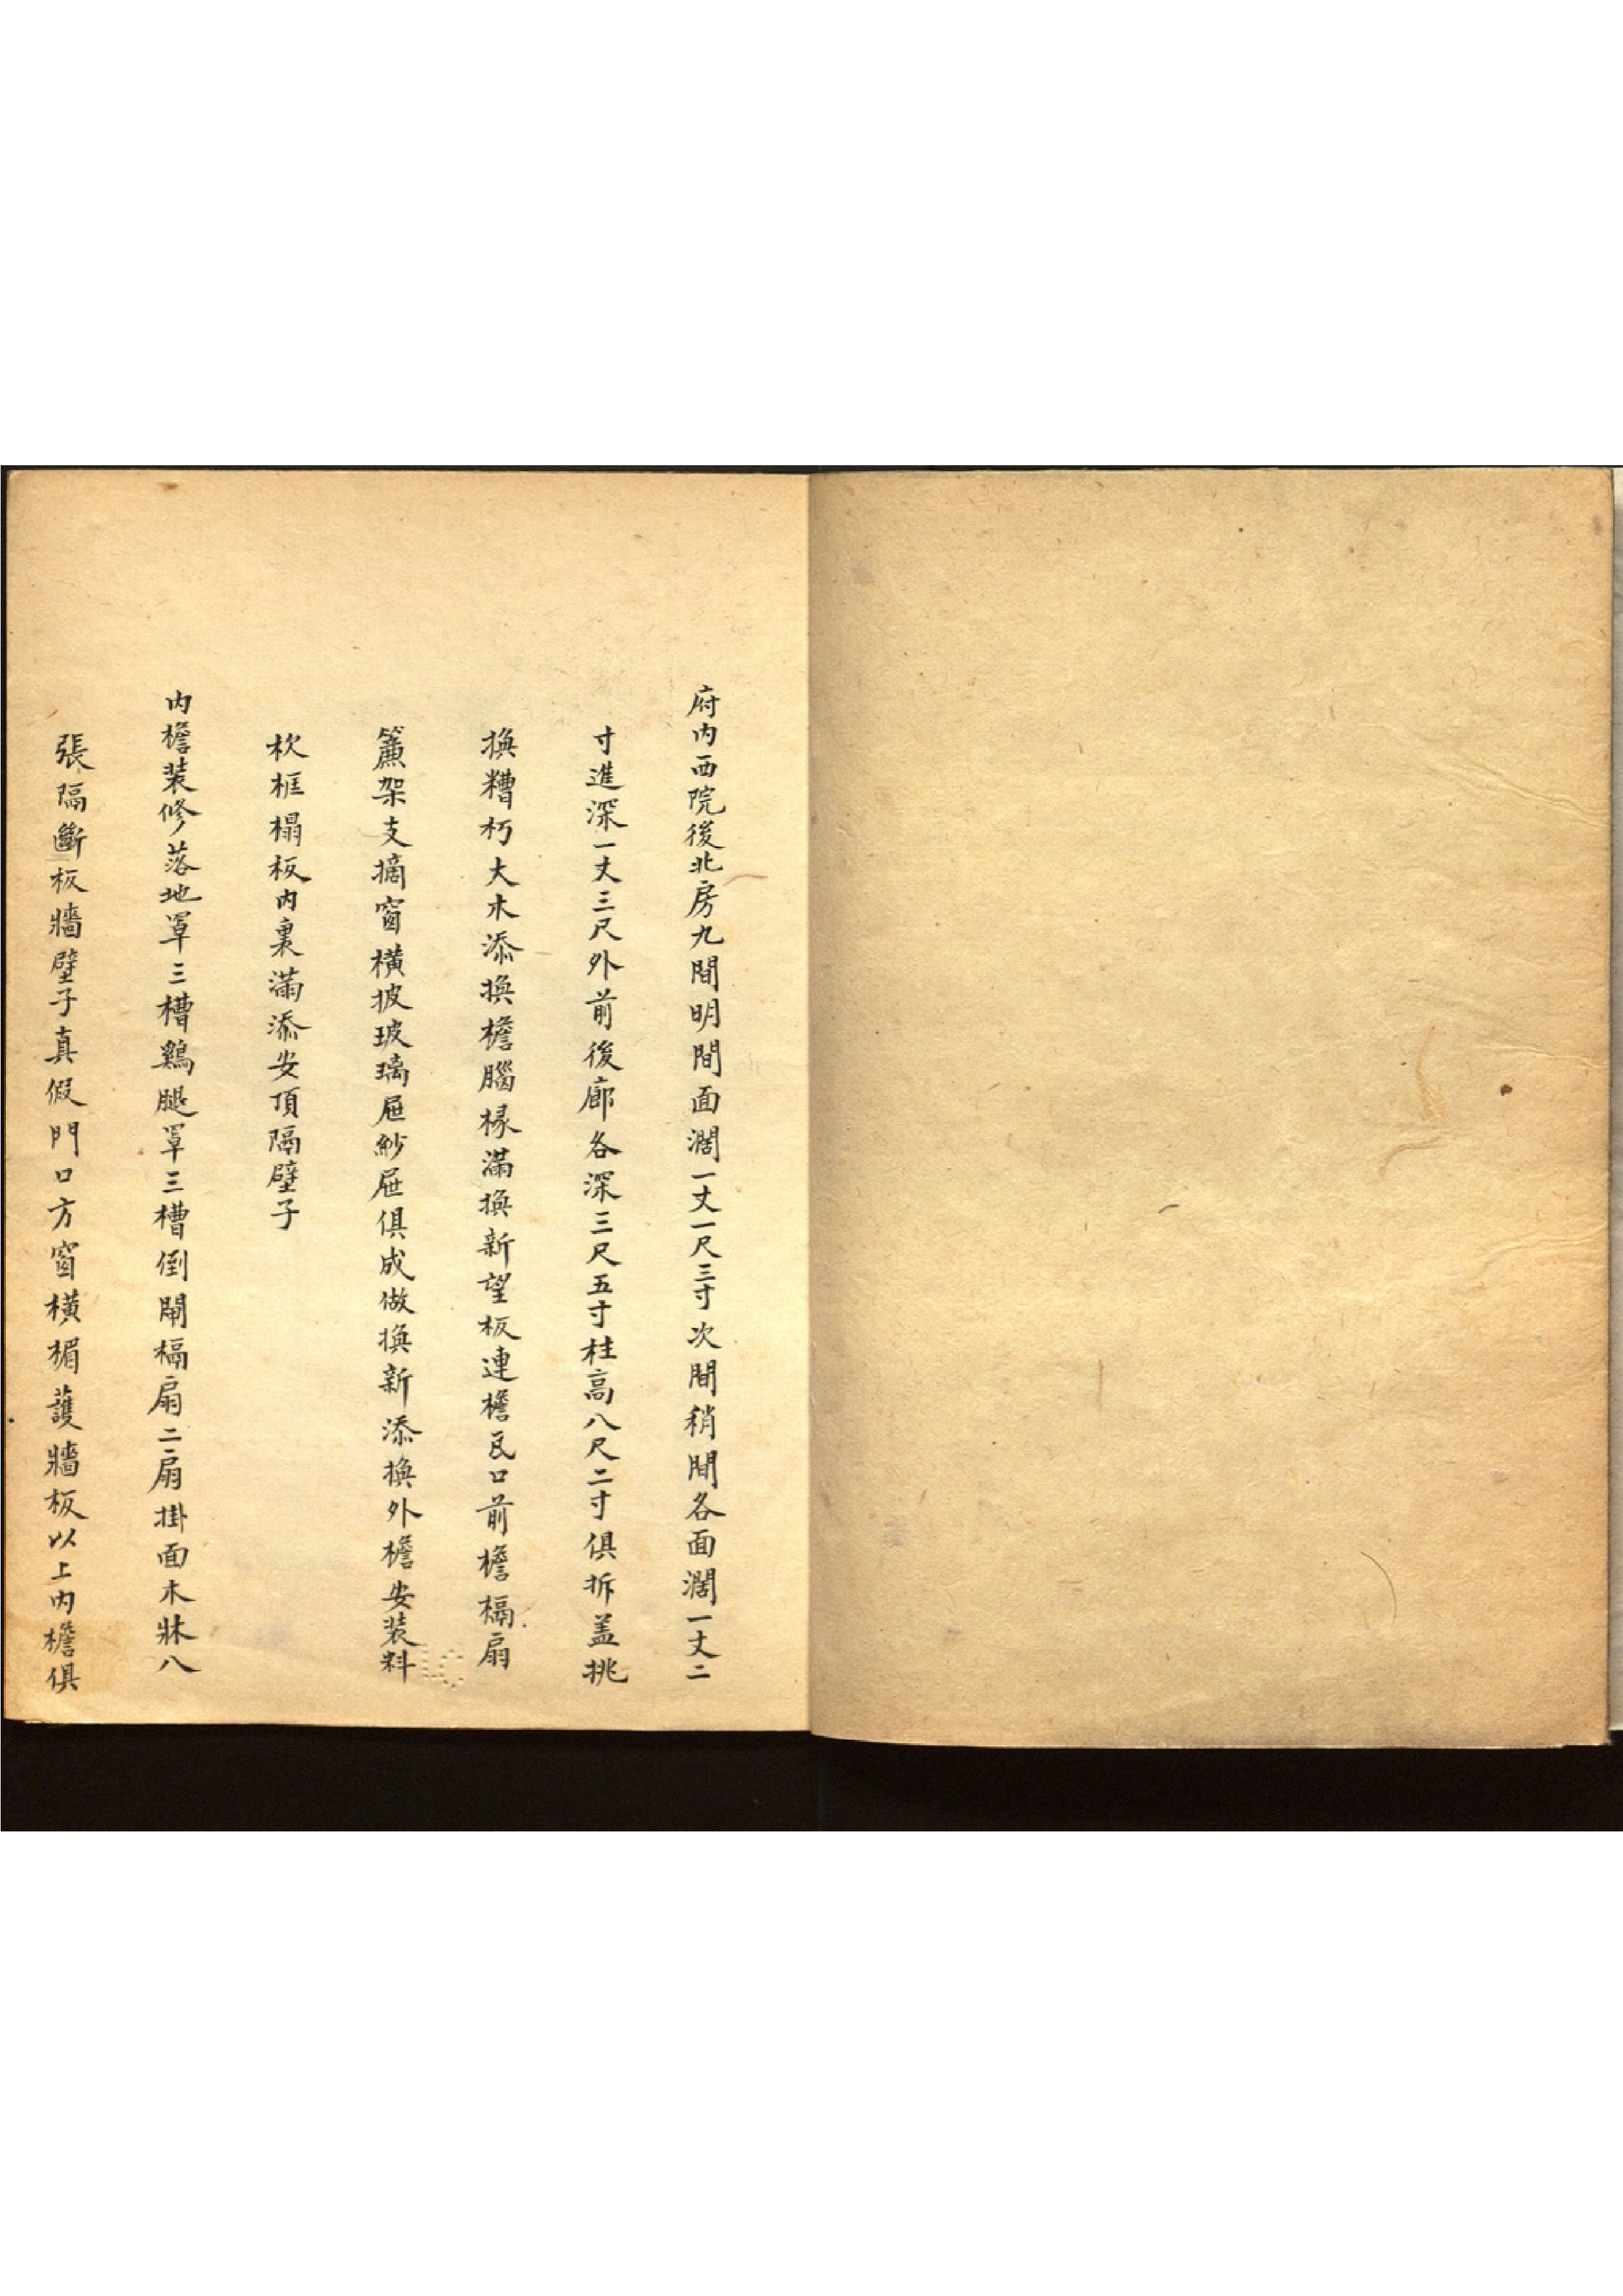 府内西院後北房九間明間面濶一丈一尺三寸次間稍間各面濶一丈二
寸進深一丈三尺外前後廊各深三尺五寸柱高八尺二寸俱拆盖挑
換糟朽大木添換檐腦椽滿換新望板連檐瓦口前檐槅扇
簾架支摘窗橫披玻璃屜紗屜俱成做換新添換外檐安装料
栨框榻板内裏滿添安頂隔壁子
内檐装修落地罩三槽鷄腿罩三槽倒閘槅扇二扇掛面木牀八
張隔斷板牆壁子真假門口方窗橫楣護牆板以上内檐俱